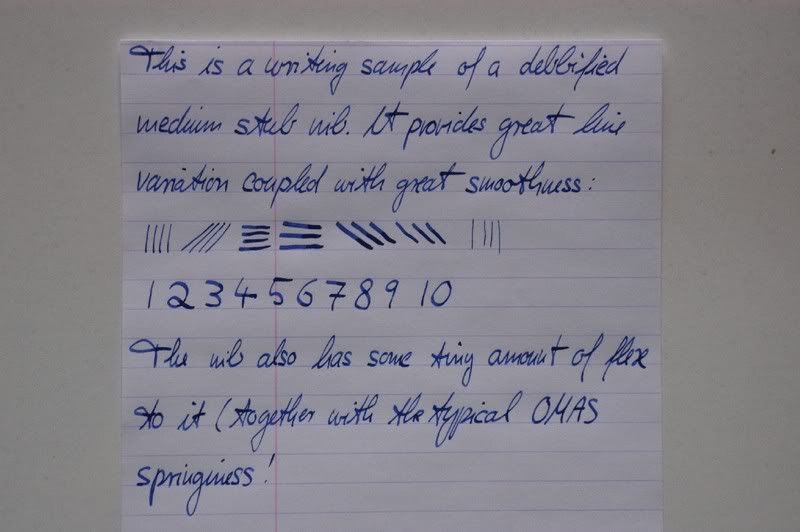 This is a writing sample of a debbified
medium stub nib. It provides great line
variation coupled with great smoothness:
1 2 3 4 5 6 7 8 9 10
The nib also has some tiny amount of flex
to it (together with the typical OMAS
springiness!